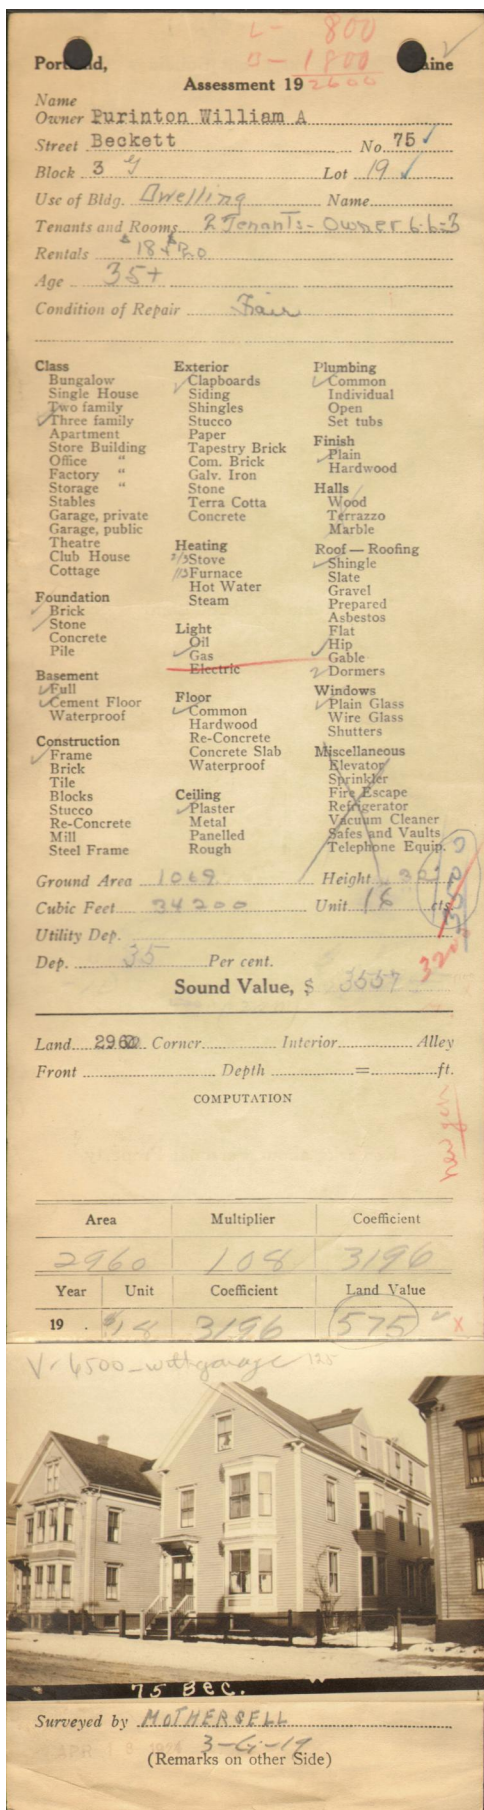 L - 800
B - 1800
2600
Portland, Maine
Assessment 19
Name
Owner Purinton William A
Street Beckett No. 75
Block 3 G Lot 19
Use of Bldg. Dwelling Name
Tenants and Rooms 2 Tenants - Owner 6-6-3
Rentals $18 $20
Age 35+
Condition of Repair Fair
Class
Bungalow
Single House
Two family
Three family
Apartment
Store Building
Office "
Factory "
Storage "
Stables
Garage, private
Garage, public
Theatre
Club House
Cottage
Foundation
Brick
Stone
Concrete
Pile
Basement
Full
Cement Floor
Waterproof
Construction
Frame
Brick
Tile
Blocks
Stucco
Re-Concrete
Mill
Steel Frame
Exterior
Clapboards
Siding
Shingles
Stucco
Paper
Tapestry Brick
Com. Brick
Galv. Iron
Stone
Terra Cotta
Concrete
Heating
2/3 Stove
1/3 Furnace
Hot Water
Steam
Light
Oil
Gas
Electric
Floor
Common
Hardwood
Re-Concrete
Concrete Slab
Waterproof
Ceiling
Plaster
Metal
Panelled
Rough
Plumbing
Common
Individual
Open
Set tubs
Finish
Plain
Hardwood
Halls
Wood
Terrazzo
Marble
Roof — Roofing
Shingle
Slate
Gravel
Prepared
Asbestos
Flat
Hip
Gable
2 Dormers
Windows
Plain Glass
Wire Glass
Shutters
Miscellaneous
Elevator
Sprinkler
Fire Escape
Refrigerator
Vacuum Cleaner
Safes and Vaults
Telephone Equip.
Ground Area 1069 Height
Cubic Feet 34200 Unit 16 cts.
Utility Dep.
Dep. 35 Per cent.
3200
Sound Value, $ 3557
Land 2960 Corner Interior Alley
Front Depth = ft.
COMPUTATION
Area Multiplier Coefficient
2960 108 3196
Year Unit Coefficient Land Value
19 . $18 3196 575 X
V- 6500 - with garage 125
75 Bec.
Surveyed by MOTHERSELL
3-G-19
(Remarks on other Side)